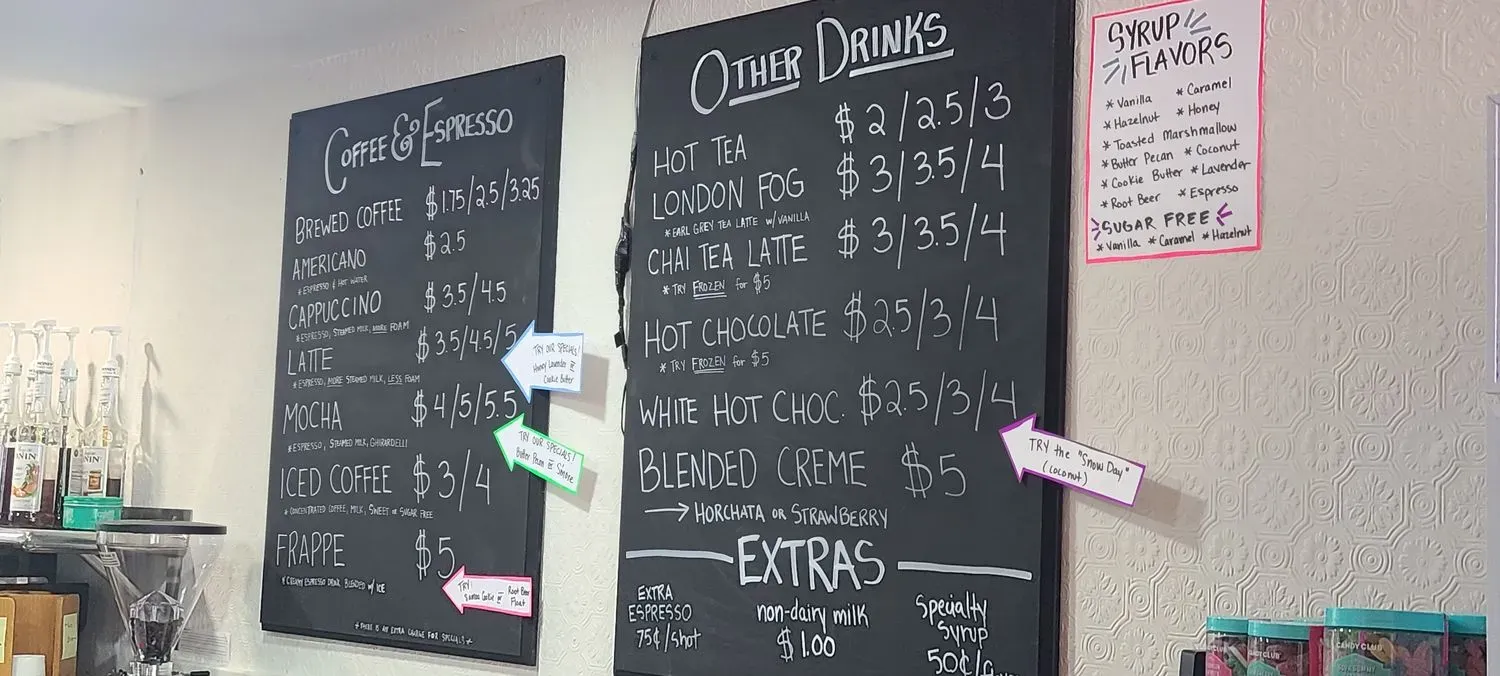 COFFEE & ESPRESSO
BREWED COFFEE $1.75/2.5/3.25
AMERICANO $2.5
*ESPRESSO & HOT WATER
CAPPUCCINO $3.5/4.5
*ESPRESSO, STEAMED MILK, MORE FOAM
LATTE $3.5/4.5/5
*ESPRESSO, MORE STEAMED MILK, LESS FOAM
TRY OUR SPECIALS!
Honey Lavender or
Cookie Butter
MOCHA $4/5/5.5
*ESPRESSO, STEAMED MILK, GHIRARDELLI
TRY OUR SPECIALS!
Butter Pecan or S'more
ICED COFFEE $3/4
*CONCENTRATED COFFEE, MILK, SWEET or SUGAR FREE
FRAPPE $5
*CREAMY ESPRESSO DRINK BLENDED w/ ICE
TRY:
Samoa Cookie or Root Beer
Float
*THERE IS AN EXTRA CHARGE FOR SPECIALS*
OTHER DRINKS
HOT TEA $2/2.5/3
LONDON FOG $3/3.5/4
*EARL GREY TEA LATTE w/ VANILLA
CHAI TEA LATTE $3/3.5/4
*TRY FROZEN for $5
HOT CHOCOLATE $2.5/3/4
*TRY FROZEN for $5
WHITE HOT CHOC. $2.5/3/4
TRY the "Snow Day"
(coconut)
BLENDED CREME $5
→ HORCHATA OR STRAWBERRY
EXTRAS
EXTRA
ESPRESSO
75¢/shot
non-dairy milk
$1.00
Specialty
Syrup
50¢/
SYRUP
FLAVORS
*Vanilla *Caramel
*Hazelnut *Honey
*Toasted Marshmallow
*Butter Pecan *Coconut
*Cookie Butter *Lavender
*Root Beer *Espresso
SUGAR FREE
*Vanilla *Caramel *Hazelnut
CANDY CLUB